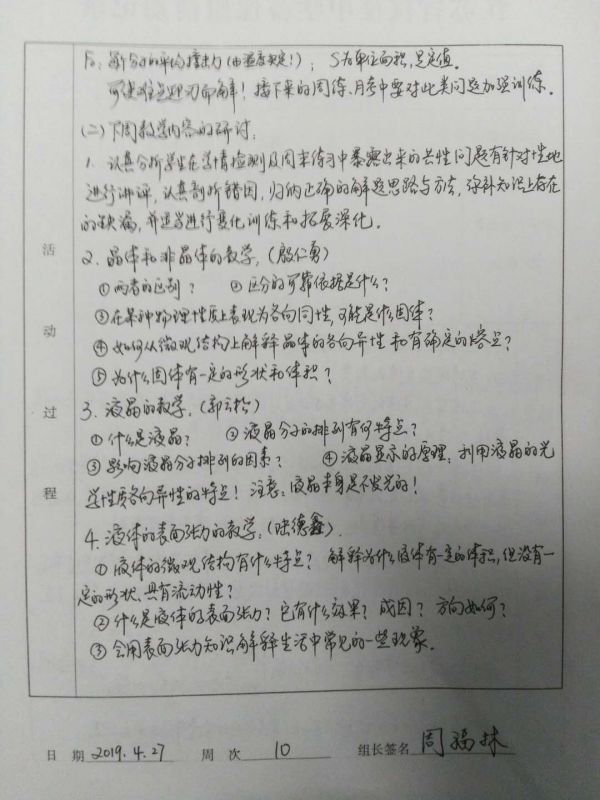 F: 每个分子的平均撞击力(由温度决定!); S为单位面积,是定值。
可使难点迎刃而解! 接下来的周练、月考中要对此类问题加强训练。
(二)下周教学内容的研讨:
1. 认真分析学生在学情检测及周末练习中暴露出来的共性问题有针对性地
进行讲评,认真剖析错因,归纳正确的解题思路与方法,弥补知识上存在
的缺漏,并适当进行变化训练和拓展深化。
2. 晶体和非晶体的教学。(殷仁勇)
①两者的区别? ②区分的可靠依据是什么?
③在某种物理性质上表现为各向同性,可能是什么固体?
④如何从微观结构上解释晶体的各向异性和有确定的熔点?
⑤为什么固体有一定的形状和体积?
3. 液晶的教学。(郭云松)
①什么是液晶? ②液晶分子的排列有何特点?
③影响液晶分子排列的因素? ④液晶显示的原理:利用液晶的光
学性质各向异性的特点! 注意:液晶本身是不发光的!
4. 液体的表面张力的教学。(陆德鑫)
①液体的微观结构有什么特点? 解释为什么液体有一定的体积,但没有一
定的形状、具有流动性?
②什么是液体的表面张力?它有什么效果? 成因? 方向如何?
③会用表面张力知识解释生活中常见的一些现象。
活动过程
日期 2019.4.27 周次 10 组长签名 周福林